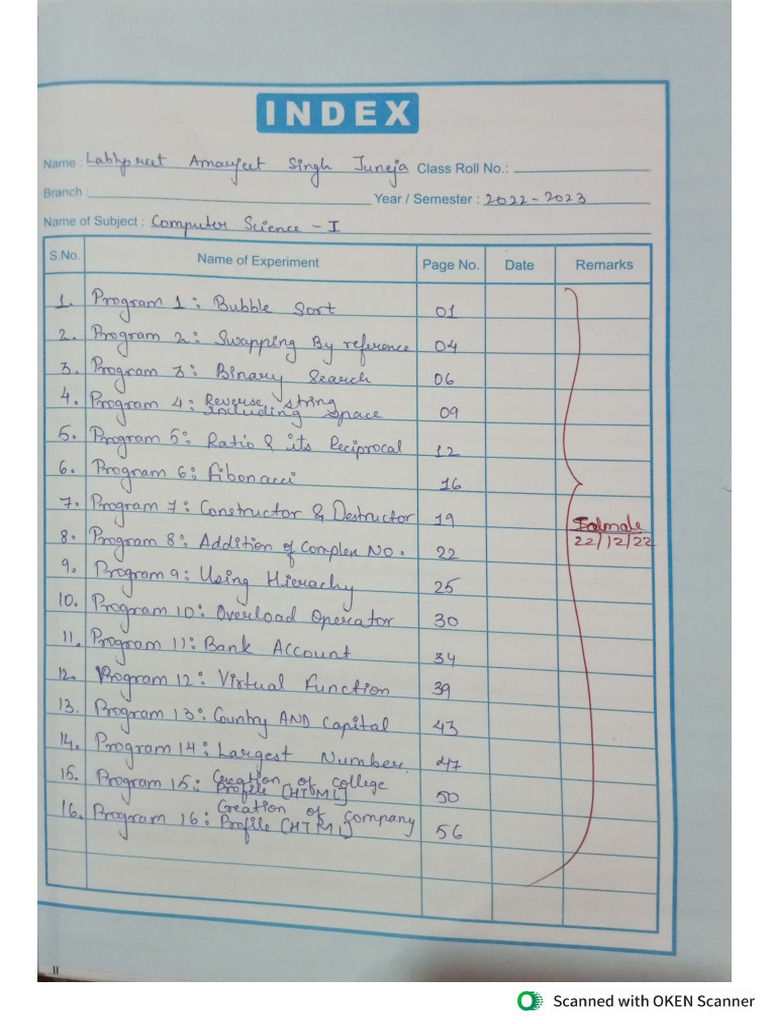 INDEX
Name : Labhpreet Amarjeet Singh Juneja Class Roll No.:
Branch : Year / Semester : 2022-2023
Name of Subject : Computer Science - I
S.No. Name of Experiment Page No. Date Remarks
1. Program 1: Bubble Sort 01
2. Program 2: Swapping By reference 04
3. Program 3: Binary Search 06
4. Program 4: Reverse string including space 09
5. Program 5: Ratio & its Reciprocal 12
6. Program 6: Fibonacci 16
7. Program 7: Constructor & Destructor 19
8. Program 8: Addition of Complex No. 22
9. Program 9: Using Hierachy 25
10. Program 10: Overload Operator 30
11. Program 11: Bank Account 34
12. Program 12: Virtual Function 39
13. Program 13: Country AND Capital 43
14. Program 14: Largest Number. 47
15. Program 15: Creation of college Profile [HTML] 50
16. Program 16: Creation of company Profile [HTML] 56
22/12/22
II
Scanned with OKEN Scanner